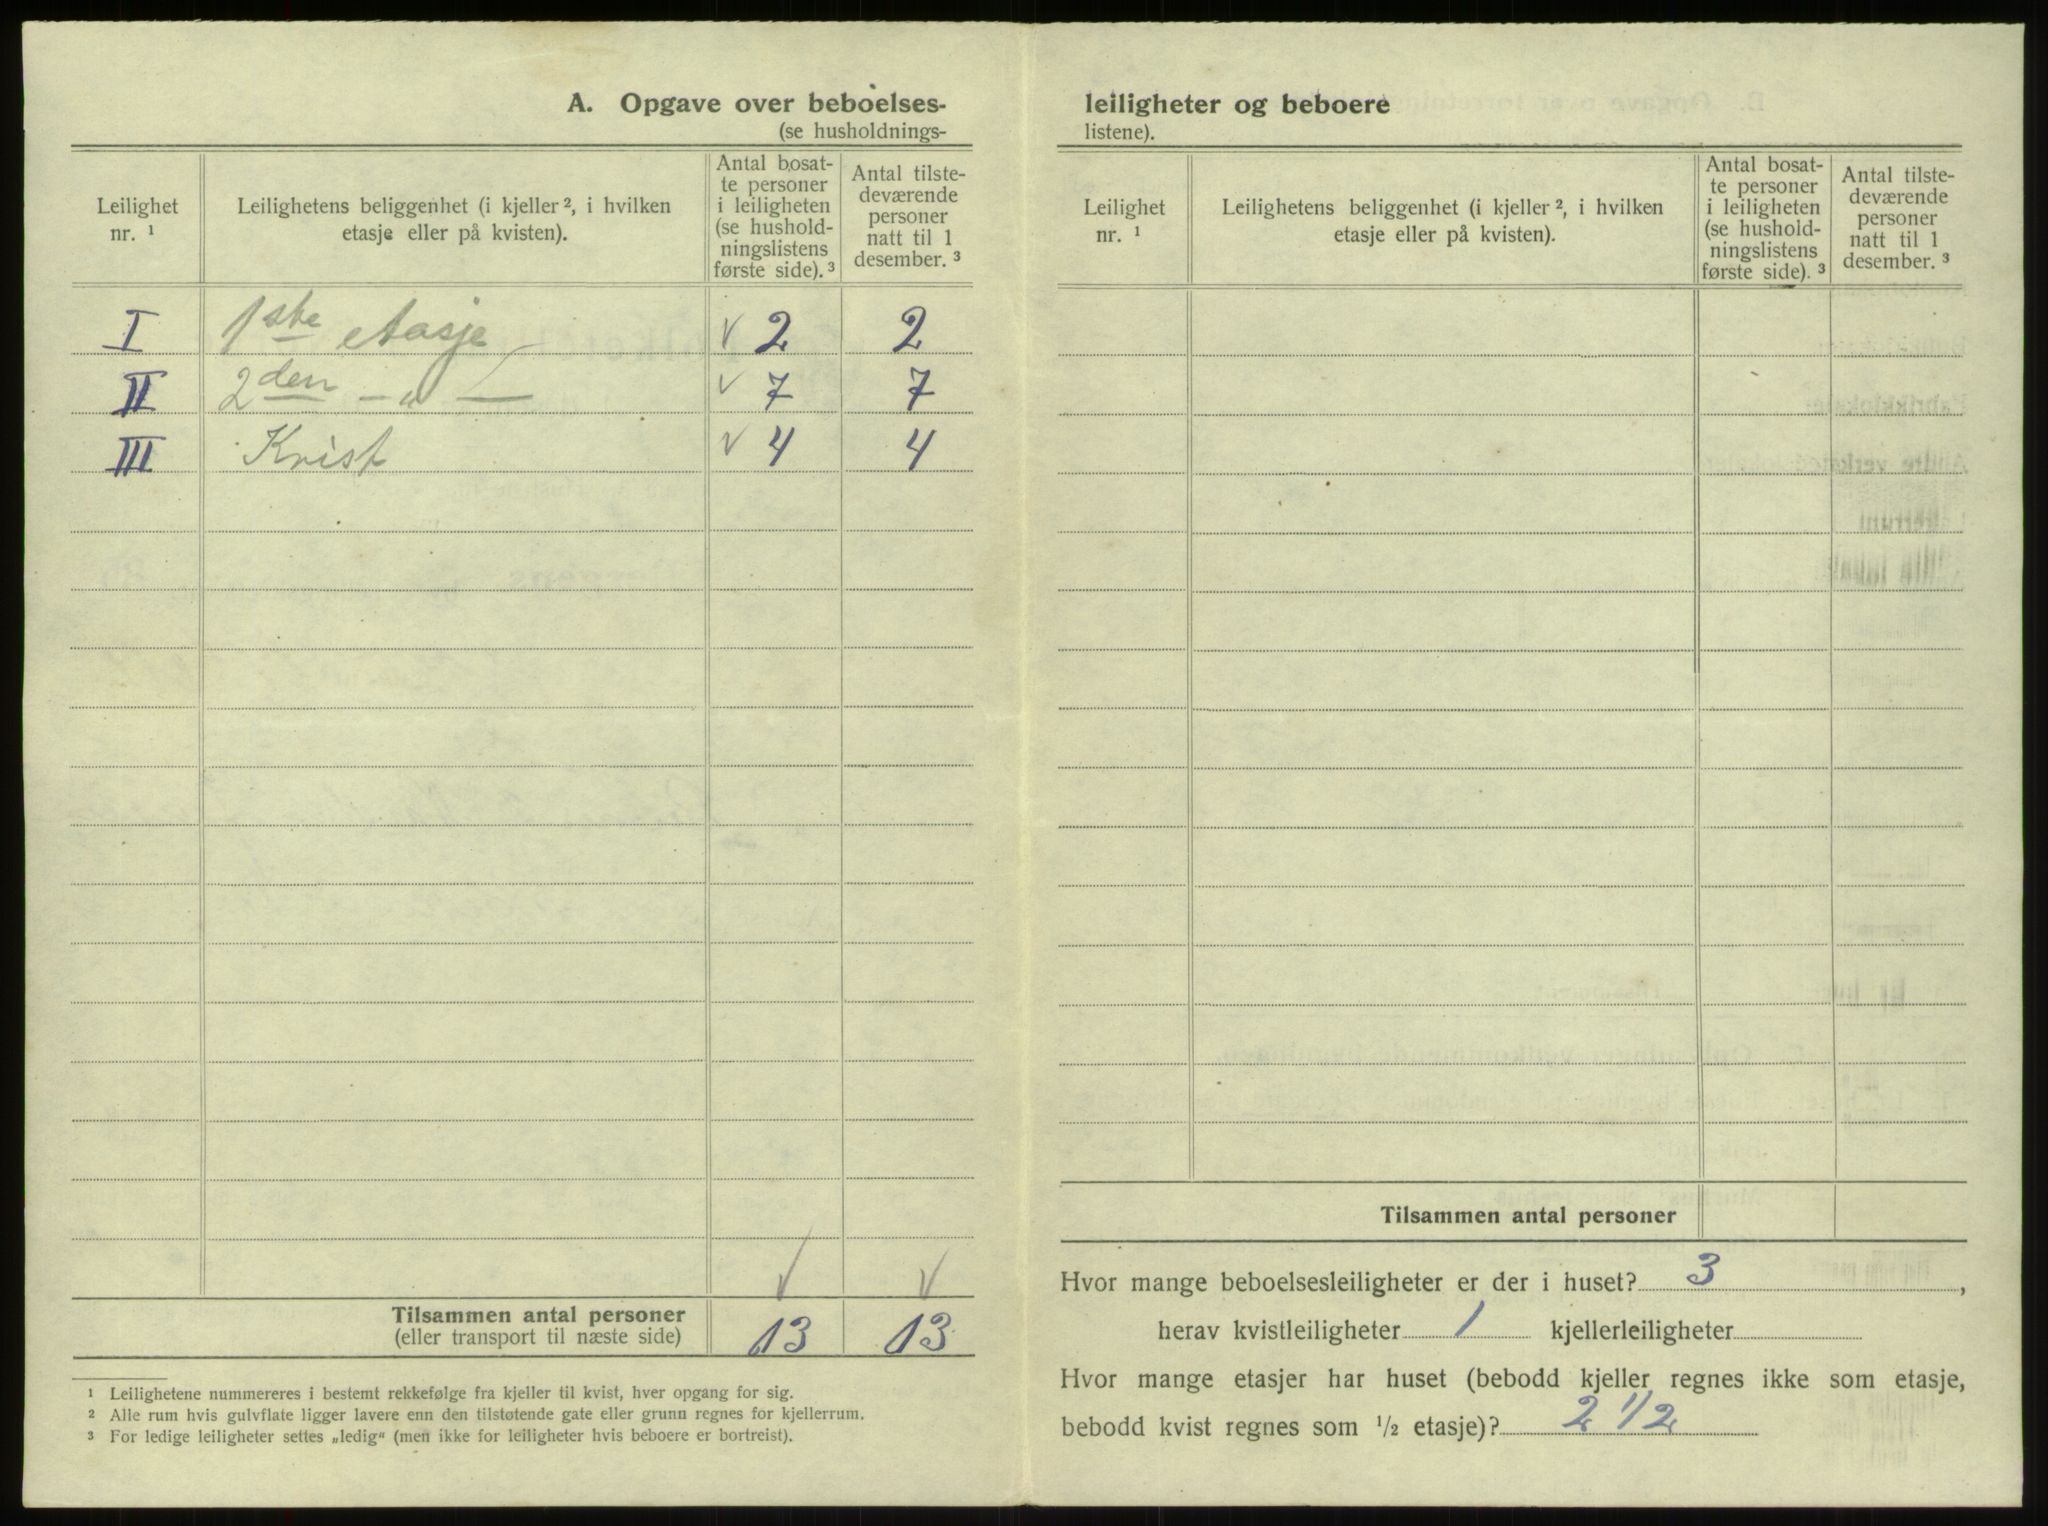 A. Opgave over beboelses-
(se husholdnings-
Leilighet nr. ¹
Leilighetens beliggenhet (i kjeller ², i hvilken etasje eller på kvisten).
Antal bosat-
te personer
i leiligheten
(se hushold-
ningslistens
første side). ³
Antal tilste-
deværende
personer
natt til 1
desember. ³
I 1ste etasje √ 2 2
II 2den — „ — √ 7 7
III Kvist √ 4 4
√ √
Tilsammen antal personer
(eller transport til næste side) 13 13
¹ Leilighetene nummereres i bestemt rekkefølge fra kjeller til kvist, hver opgang for sig.
² Alle rum hvis gulvflate ligger lavere enn den tilstøtende gate eller grunn regnes for kjellerrum.
³ For ledige leiligheter settes „ledig“ (men ikke for leiligheter hvis beboere er bortreist).
leiligheter og beboere
listene).
Leilighet nr. ¹
Leilighetens beliggenhet (i kjeller ², i hvilken etasje eller på kvisten).
Antal bosat-
te personer
i leiligheten
(se hushold-
ningslistens
første side). ³
Antal tilste-
deværende
personer
natt til 1
desember. ³
Tilsammen antal personer
Hvor mange beboelsesleiligheter er der i huset? 3,
herav kvistleiligheter 1 kjellerleiligheter
Hvor mange etasjer har huset (bebodd kjeller regnes ikke som etasje,
bebodd kvist regnes som ½ etasje)? 2 1/2